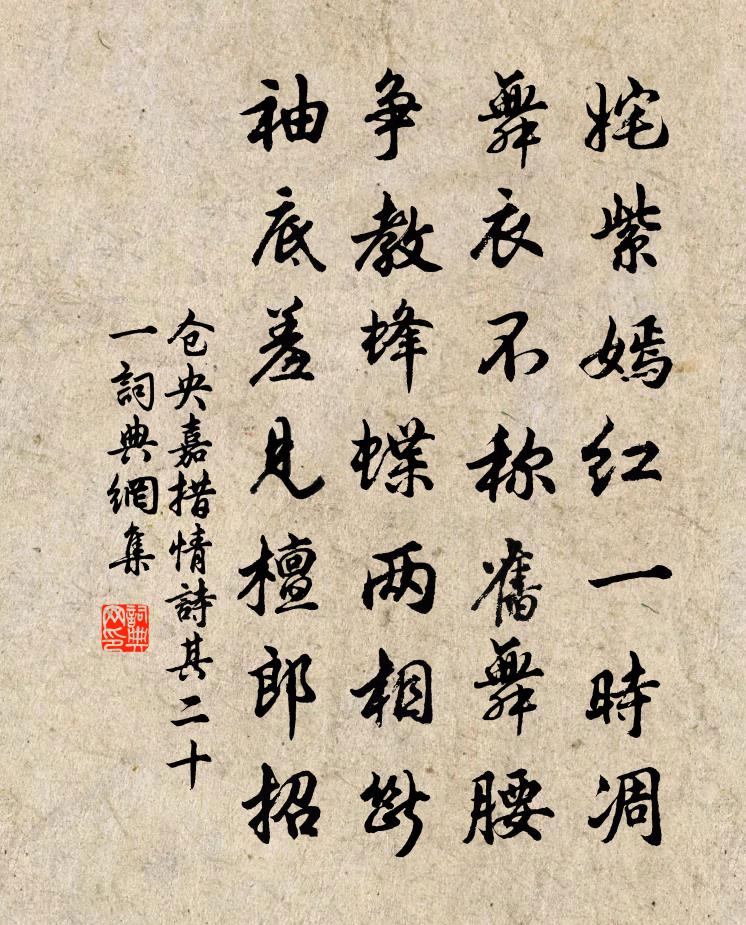 姹紫嫣红一時凋
舞衣不称舊舞腰
争教蜂蝶两相斷
袖底羞見檀郎招
仓央嘉措情詩其二十
一詞典網集
詞典網印